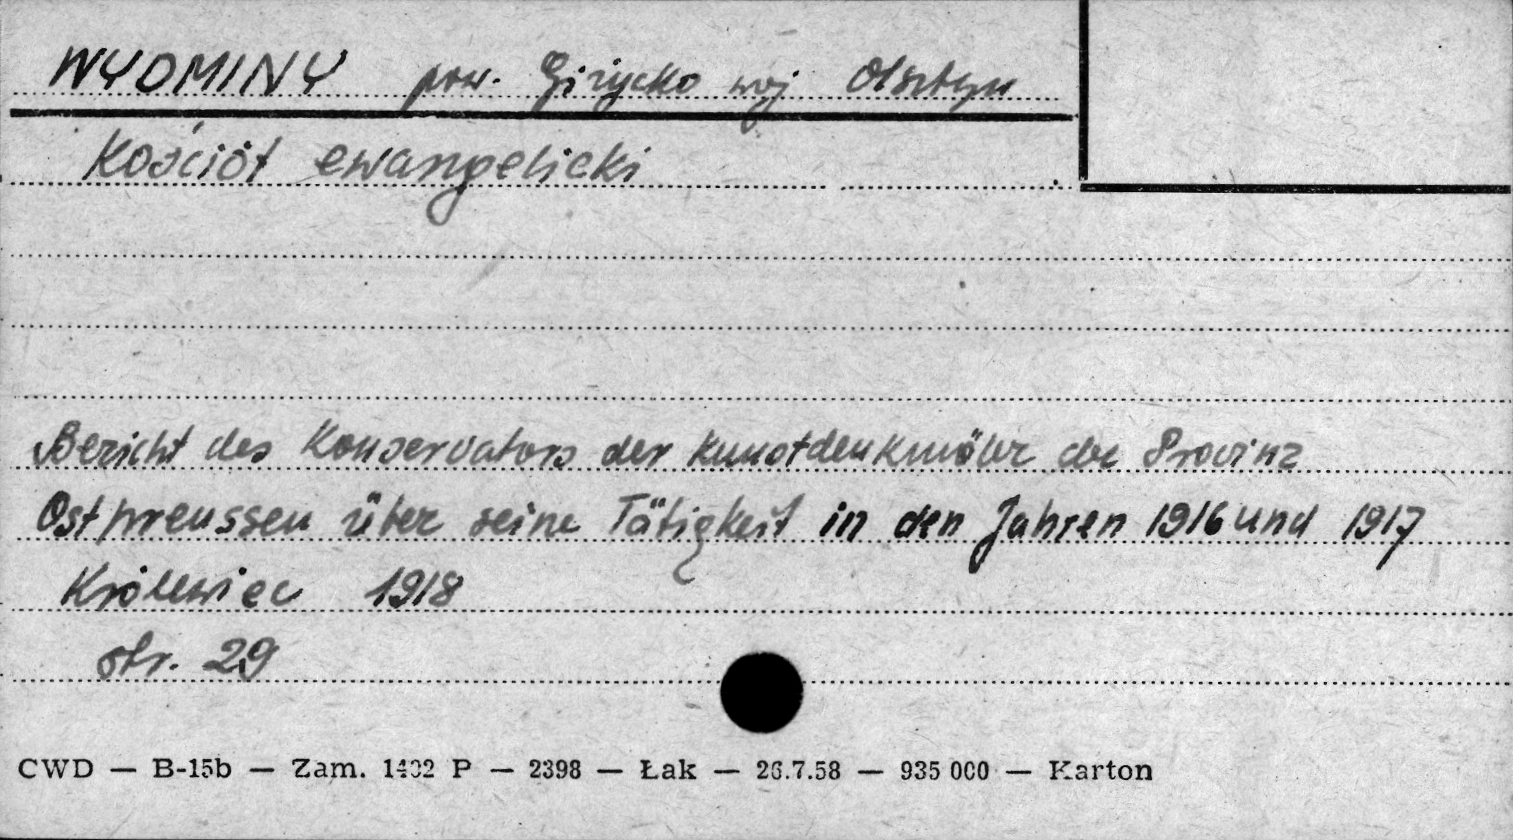 WYDMINY pow. Giżycko woj Olsztyn
Kościół ewangelicki
Bericht des Konservators der Kunstdenkmäler der Provinz
Ostpreussen über seine Tätigkeit in den Jahren 1916 und 1917
Królewiec 1918
str. 29
CWD — B-15b — Zam. 1432 P — 2398 — Łak — 26.7.58 — 935 000 — Karton